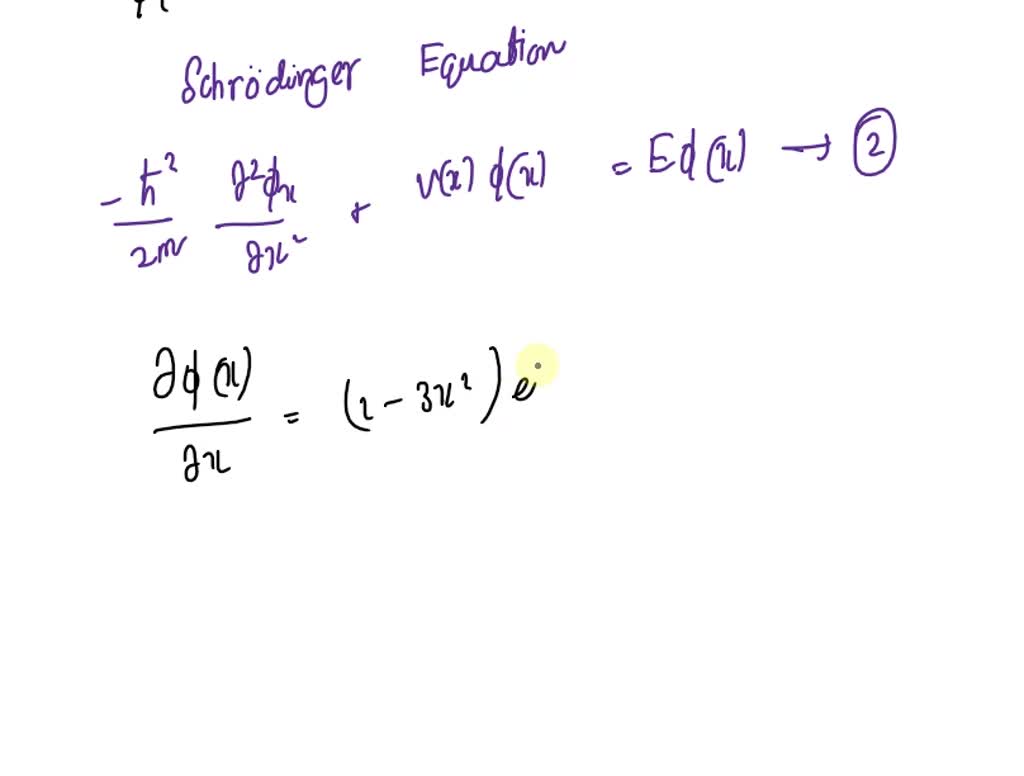 Schrödinger Equation
-ħ²/2m ∂²ϕx/∂x² + v(x) ϕ(x) = Eϕ(x) → ②
∂ϕ(x)/∂x = (2 - 3x²) e